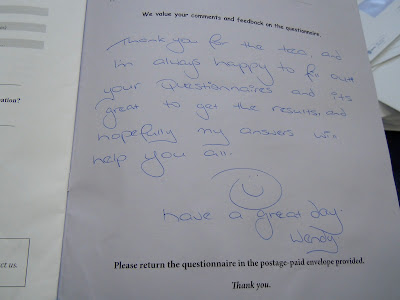 We value your comments and feedback on the questionnaire.
Thank you for the tea, and
I'm always happy to fill out
your Questionnaires and its
great to get the results, and
hopefully my answers will
help you all.
have a great day.
Wendy
Please return the questionnaire in the postage-paid envelope provided.
Thank you.
ation?
ct us.